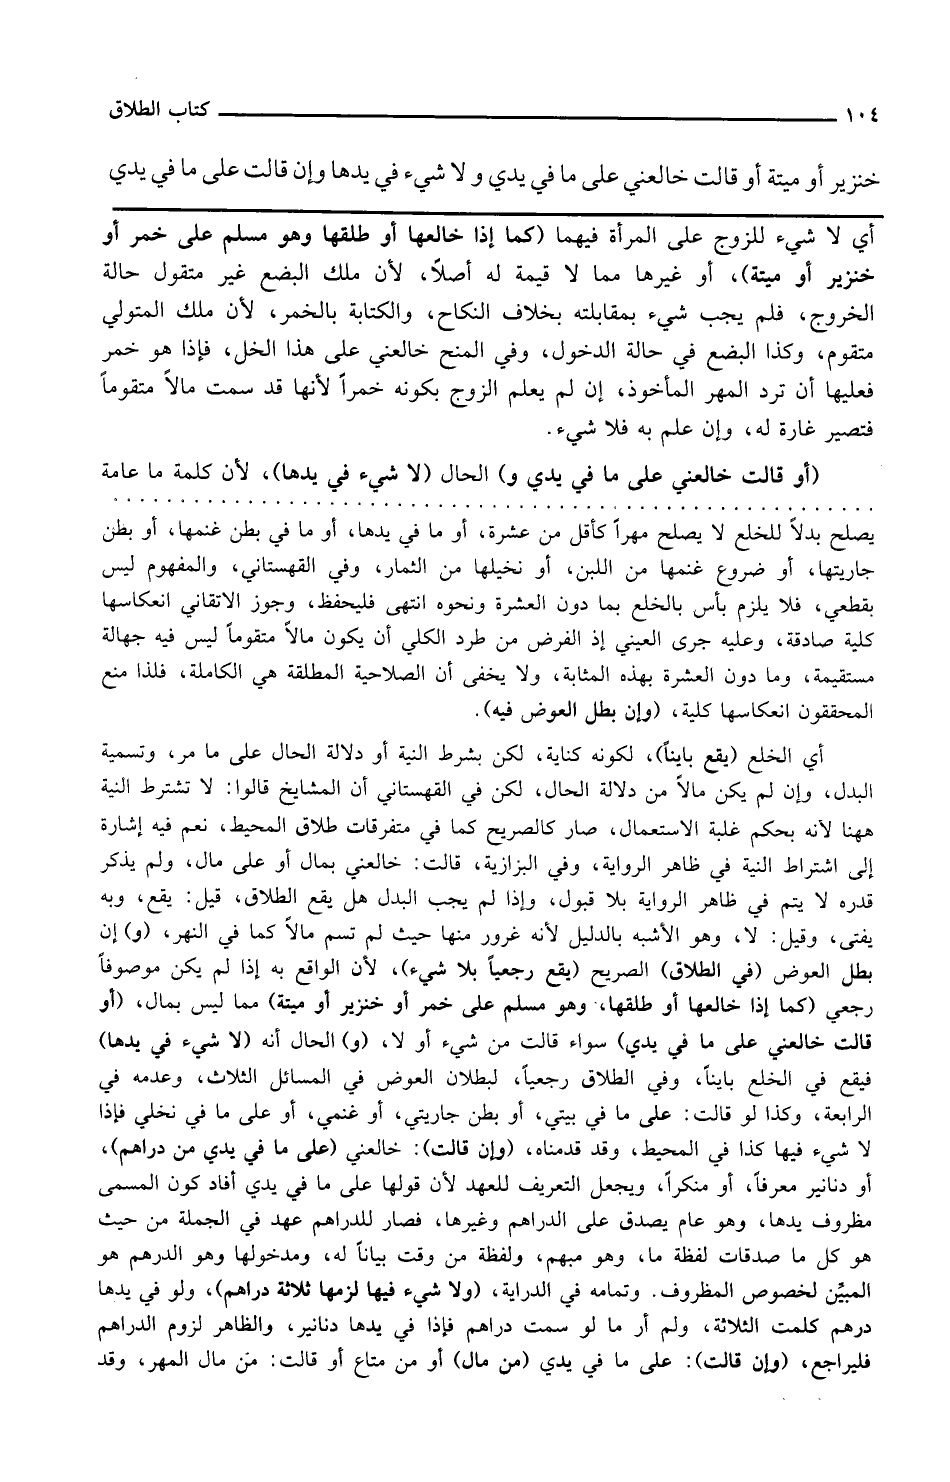 ١٠٤ كتاب الطلاق
خنزير أو ميتة أو قالت خالعني على ما في يدي و لا شيء في يدها وإن قالت على ما في يدي
أي لا شيء للزوج على المرأة فيهما (كما إذا خالعها أو طلقها وهو مسلم على خمر أو
خنزير أو ميتة)، أو غيرها مما لا قيمة له أصلاً، لأن ملك البضع غير متقول حالة
الخروج، فلم يجب شيء بمقابلته بخلاف النكاح، والكتابة بالخمر، لأن ملك المتولي
متقوم، وكذا البضع في حالة الدخول، وفي المنح خالعني على هذا الخل، فإذا هو خمر
فعليها أن ترد المهر المأخوذ، إن لم يعلم الزوج بكونه خمراً لأنها قد سمت مالاً متقوماً
فتصير غارة له، وإن علم به فلا شيء.
(أو قالت خالعني على ما في يدي و) الحال (لا شيء في يدها)، لأن كلمة ما عامة
يصلح بدلاً للخلع لا يصلح مهراً كأقل من عشرة، أو ما في يدها، أو ما في بطن غنمها، أو بطن
جاريتها، أو ضروع غنمها من اللبن، أو نخيلها من الثمار، وفي القهستاني، والمفهوم ليس
بقطعي، فلا يلزم بأس بالخلع بما دون العشرة ونحوه انتهى فليحفظ، وجوز الاتقاني انعكاسها
كلية صادقة، وعليه جرى العيني إذ الفرض من طرد الكلي أن يكون مالاً متقوماً ليس فيه جهالة
مستقيمة، وما دون العشرة بهذه المثابة، ولا يخفى أن الصلاحية المطلقة هي الكاملة، فلذا منع
المحققون انعكاسها كلية، (وإن بطل العوض فيه).
أي الخلع (يقع بايناً)، لكونه كناية، لكن بشرط النية أو دلالة الحال على ما مر، وتسمية
البدل، وإن لم يكن مالاً من دلالة الحال، لكن في القهستاني أن المشايخ قالوا: لا تشترط النية
ههنا لأنه بحكم غلبة الاستعمال، صار كالصريح كما في متفرقات طلاق المحيط، نعم فيه إشارة
إلى اشتراط النية في ظاهر الرواية، وفي البزازية، قالت: خالعني بمال أو على مال، ولم يذكر
قدره لا يتم في ظاهر الرواية بلا قبول، وإذا لم يجب البدل هل يقع الطلاق، قيل: يقع، وبه
يفتى، وقيل: لا، وهو الأشبه بالدليل لأنه غرور منها حيث لم تسم مالاً كما في النهر، (و) إن
بطل العوض (في الطلاق) الصريح (يقع رجعياً بلا شيء)، لأن الواقع به إذا لم يكن موصوفاً
رجعي (كما إذا خالعها أو طلقها، وهو مسلم على خمر أو خنزير أو ميتة) مما ليس بمال، (أو
قالت خالعني على ما في يدي) سواء قالت من شيء أو لا، (و) الحال أنه (لا شيء في يدها)
فيقع في الخلع بايناً، وفي الطلاق رجعياً، لبطلان العوض في المسائل الثلاث، وعدمه في
الرابعة، وكذا لو قالت: على ما في بيتي، أو بطن جاريتي، أو غنمي، أو على ما في نخلي فإذا
لا شيء فيها كذا في المحيط، وقد قدمناه، (وإن قالت): خالعني (على ما في يدي من دراهم)،
أو دنانير معرفاً، أو منكراً، ويجعل التعريف للعهد لأن قولها على ما في يدي أفاد كون المسمى
مظروف يدها، وهو عام يصدق على الدراهم وغيرها، فصار للدراهم عهد في الجملة من حيث
هو كل ما صدقات لفظة ما، وهو مبهم، ولفظة من وقت بياناً له، ومدخولها وهو الدرهم هو
المبيِّن لخصوص المظروف. وتمامه في الدراية، (ولا شيء فيها لزمها ثلاثة دراهم)، ولو في يدها
درهم كلمت الثلاثة، ولم أر ما لو سمت دراهم فإذا في يدها دنانير، والظاهر لزوم الدراهم
فليراجع، (وإن قالت): على ما في يدي (من مال) أو من متاع أو قالت: من مال المهر، وقد